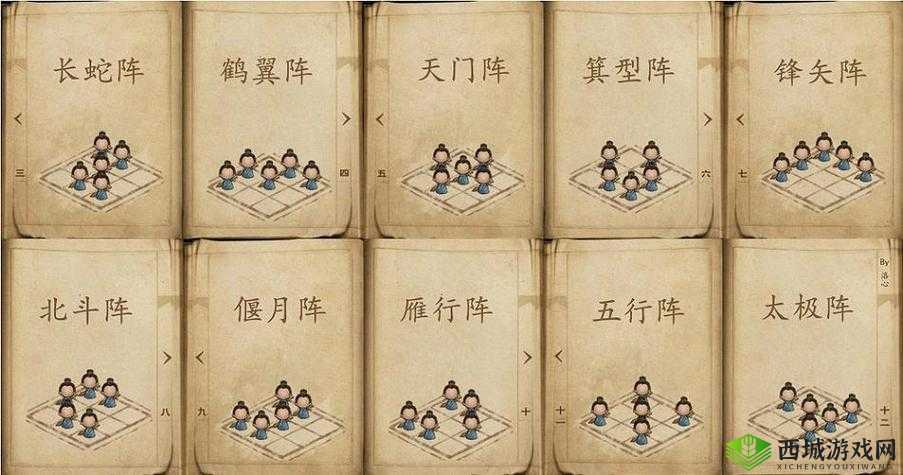 长蛇阵
三
鹤翼阵
四
天门阵
五
箕型阵
六
锋矢阵
七
北斗阵
八
偃月阵
九
雁行阵
十
五行阵
十一
太极阵
By 洛心
十二
西城游戏网
XICHENGYOUXIWANG